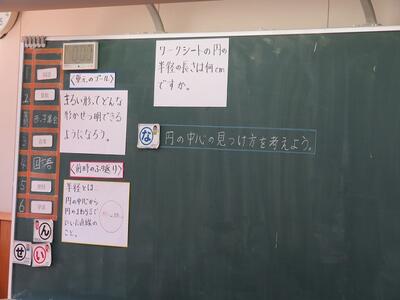 ワークシートの円の
半径の長さは何cm
ですか。
<単元のゴール>
まるい形って、どんな
形かせつ明できる
ようになろう。
な
円の中心の見つけ方を考えよう。
<前時のふり返り>
半径とは…
円の中心から
円のまわりまで
ひいた直線の
こと。
1
2
3
4
国語
5
6
ん
せ
い